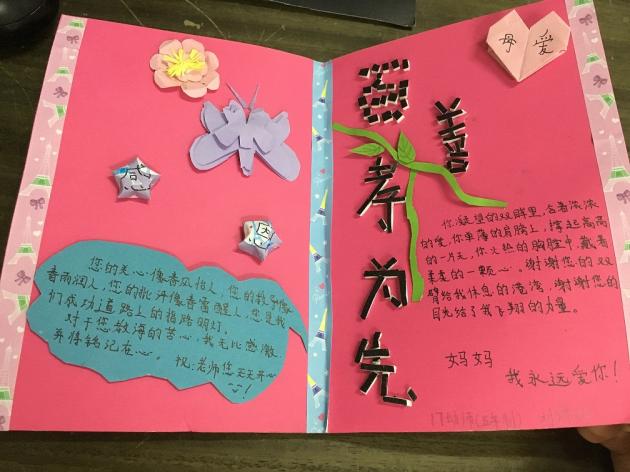 感
恩
您的关心像春风怡人，您的教导像
春雨润人，您的批评像春雷醒人，您是我
们成功道路上的指路明灯。
对于您教诲的苦心，我无比感激，
并将铭记在心。祝：老师您天天开心
母爱
善
孝为先
你凝望的双眸里，含着浓浓
的爱，你单薄的肩膀上，撑起高高
的一片天，你火热的胸腔中，藏着
柔柔的一颗心。谢谢您的双
臂给我休息的港湾，谢谢您的
目光给了我飞翔的力量。
妈妈
我永远爱你！
17幼师(五年制)